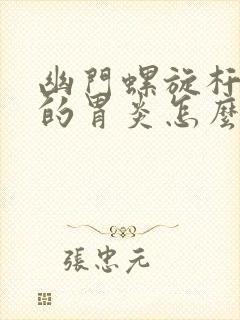 幽門螺旋杆
的胃炎怎麼
張忠元